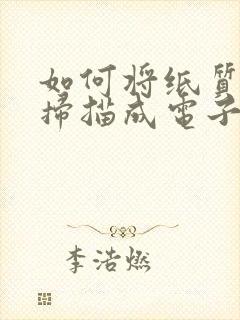 如何将纸质
掃描成電子
李浩燃